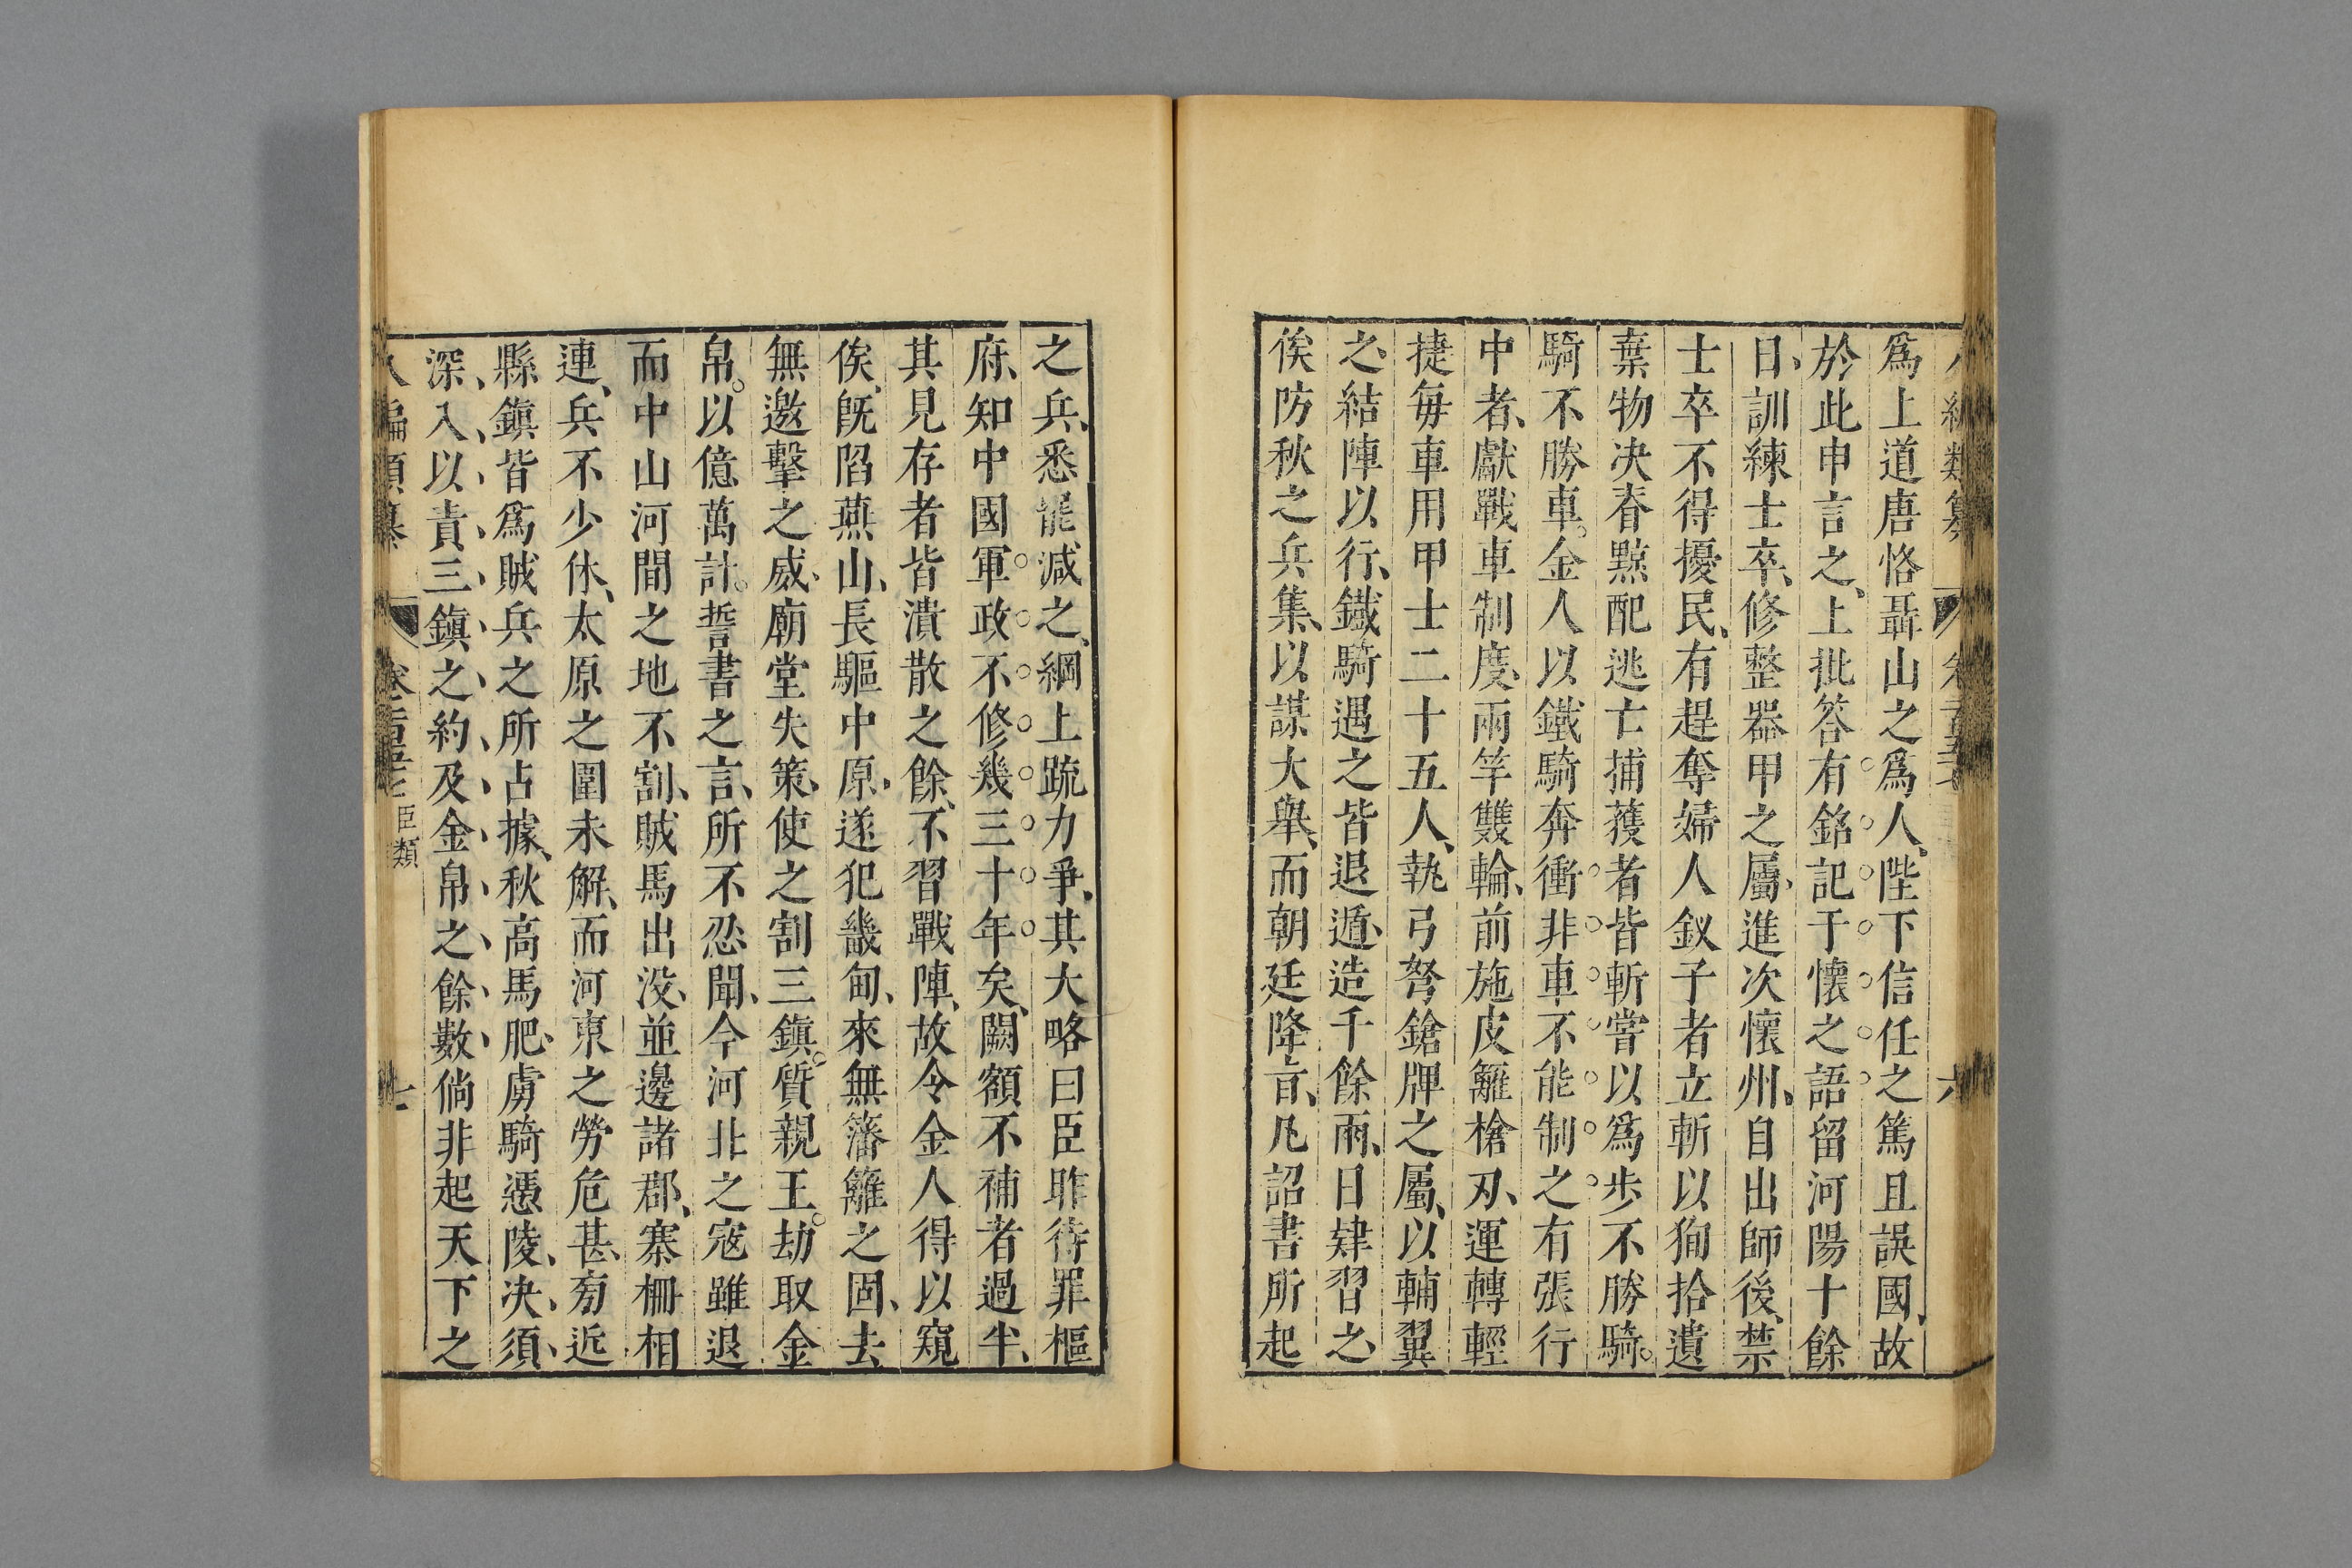 爲上道唐恪聶山之爲人、陛下信任之篤且誤國、故
於此申言之、上批答有銘記于懷之語留河陽十餘
日、訓練士卒、修整器甲之屬、進次懷州、自出師後、禁
士卒不得擾民、有趕奪婦人釵子者立斬以狥拾遺
棄物决春黥配逃亡捕獲者皆斬嘗以爲步不勝騎。
騎不勝車。金人以鐵騎奔衝非車不能制之有張行
中者、獻戰車制度、兩竿雙輪、前施皮籬槍刃、運轉輕
捷每車用甲士二十五人、執弓弩鎗牌之屬、以輔翼
之、結陣以行、鐵騎遇之皆退遁、造千餘兩、日肄習之、
俟防秋之兵集、以謀大舉、而朝廷降旨、凡詔書所起
之兵、悉罷減之、綱上疏力爭、其大略曰臣昨待罪樞
府、知中國軍政不修幾三十年矣、闕額不補者過半、
其見存者皆潰散之餘、不習戰陣、故令金人得以窺
俟、既陷燕山、長驅中原、遂犯畿甸、來無藩籬之固、去
無邀擊之威、廟堂失策、使之割三鎭。質親王。劫取金
帛。以億萬計。誓書之言、所不忍聞、今河北之寇雖退
而中山河間之地不割、賊馬出没、並邊諸郡、寨柵相
連、兵不少休、太原之圍未解、而河東之勞危甚、旁近
縣鎭皆爲賊兵之所占據、秋高馬肥、虜騎憑陵、决須
深入以責三鎭之約及金帛之餘數倘非起天下之
編類纂 臣類 七